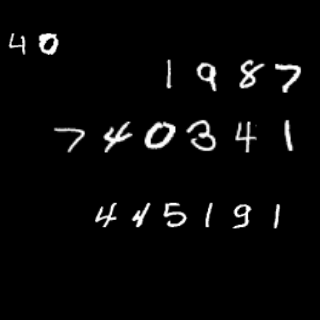 40
1987
740341
445191